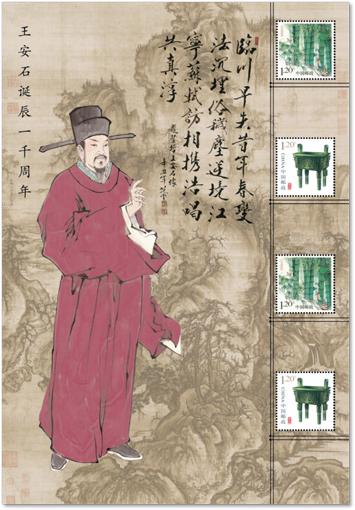 王安石诞辰一千周年
臨川早失昔年春變
法沉埋俗穢塵送堍江
寧蘇軾訪相携浩唱
共真淳
1.20
中国邮政
1.20
CHINA 中国邮政
1.20
中国邮政
1.20
CHINA 中国邮政